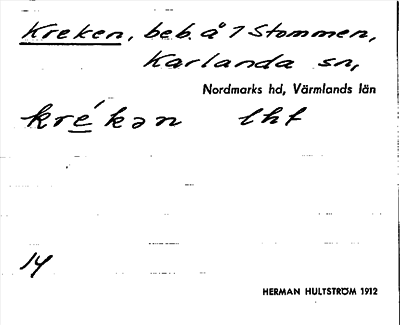 Kreken, beb. å 7 Stommen,
Karlanda sn,
Nordmarks hd, Värmlands län
kré̱kən lht
14
HERMAN HULTSTRÖM 1912